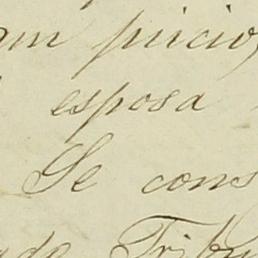 juicio,
esposa
Se cons
Tribu